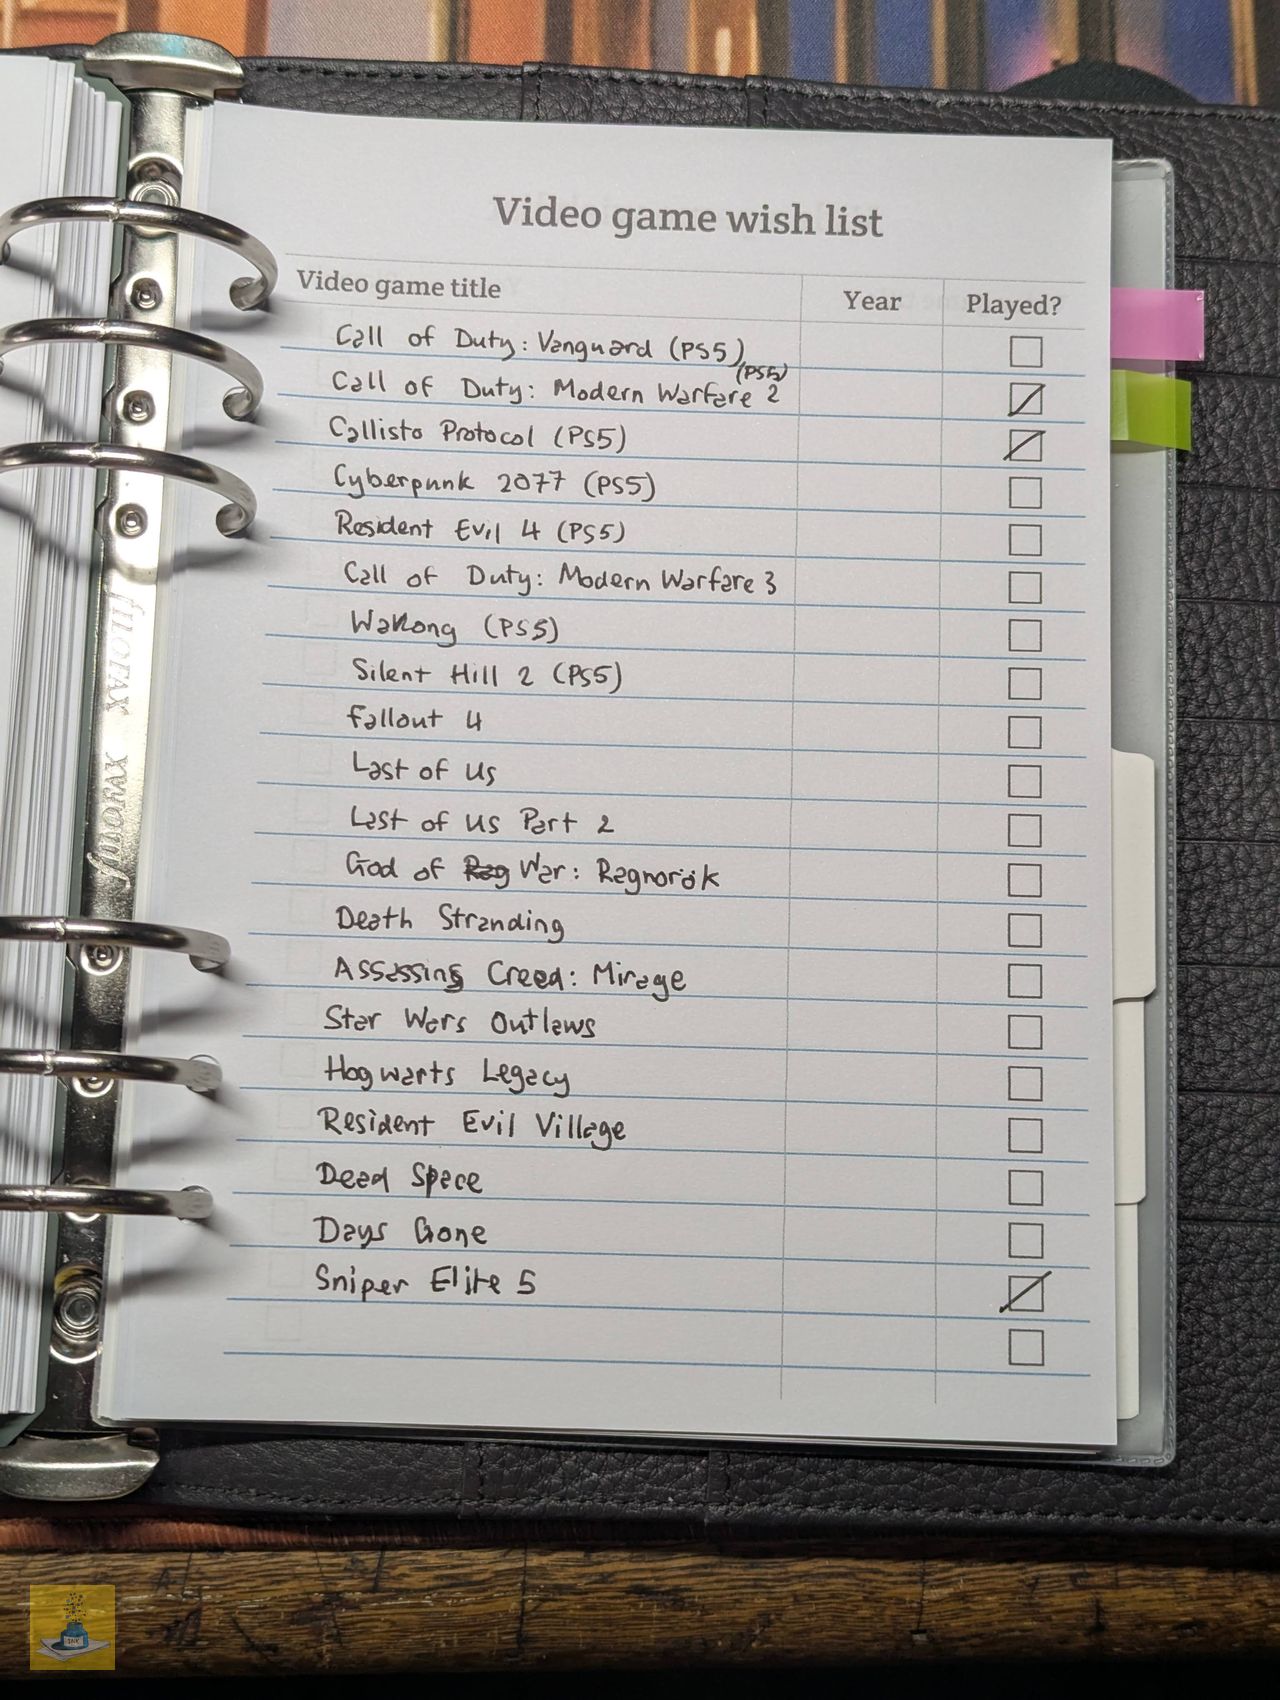 Video game wish list
Video game title Year Played?
Call of Duty: Vanguard (PS5)
Call of Duty: Modern Warfare 2 (PS5)
Callisto Protocol (PS5)
Cyberpunk 2077 (PS5)
Resident Evil 4 (PS5)
Call of Duty: Modern Warfare 3
WaKong (PS5)
Silent Hill 2 (PS5)
Fallout 4
Last of Us
Last of Us Part 2
God of Rag War: Ragnorök
Death Stranding
Assassins Creed: Mirage
Star Wars Outlaws
Hogwarts Legacy
Resident Evil Village
Dead Space
Days Gone
Sniper Elite 5
filofax filofax
INK